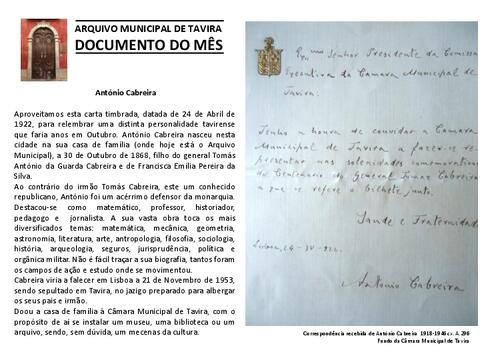 ARQUIVO MUNICIPAL DE TAVIRA
DOCUMENTO DO MÊS
António Cabreira
Aproveitamos esta carta timbrada, datada de 24 de Abril de
1922, para relembrar uma distinta personalidade tavirense
que faria anos em Outubro. António Cabreira nasceu nesta
cidade na sua casa de família (onde hoje está o Arquivo
Municipal), a 30 de Outubro de 1868, filho do general Tomás
António da Guarda Cabreira e de Francisca Emília Pereira da
Silva.
Ao contrário do irmão Tomás Cabreira, este um conhecido
republicano, António foi um acérrimo defensor da monarquia.
Destacou-se como matemático, professor, historiador,
pedagogo e jornalista. A sua vasta obra toca os mais
diversificados temas: matemática, mecânica, geometria,
astronomia, literatura, arte, antropologia, filosofia, sociologia,
história, arqueologia, seguros, jurisprudência, política e
orgânica militar. Não é fácil traçar a sua biografia, tantos foram
os campos de ação e estudo onde se movimentou.
Cabreira viria a falecer em Lisboa a 21 de Novembro de 1953,
sendo sepultado em Tavira, no jazigo preparado para albergar
os seus pais e irmão.
Doou a casa de família à Câmara Municipal de Tavira, com o
propósito de aí se instalar um museu, uma biblioteca ou um
arquivo, sendo, sem dúvida, um mecenas da cultura.
Senhor Presidente da Comissão
Executiva da Camara Municipal de
Tavira:
Tenho a honra de convidar a Camara
Municipal de Tavira a fazer-se re-
presentar nas solenidades comemorativas
do Centenario do General Tomaz Cabreira
a que se refere o bilhete junto.
Saude e Fraternidade
Lisboa, 24-IV-922.
Antonio Cabreira
Correspondência recebida de António Cabreira 1918-1946 cx. A.296
Fundo da Câmara Municipal de Tavira